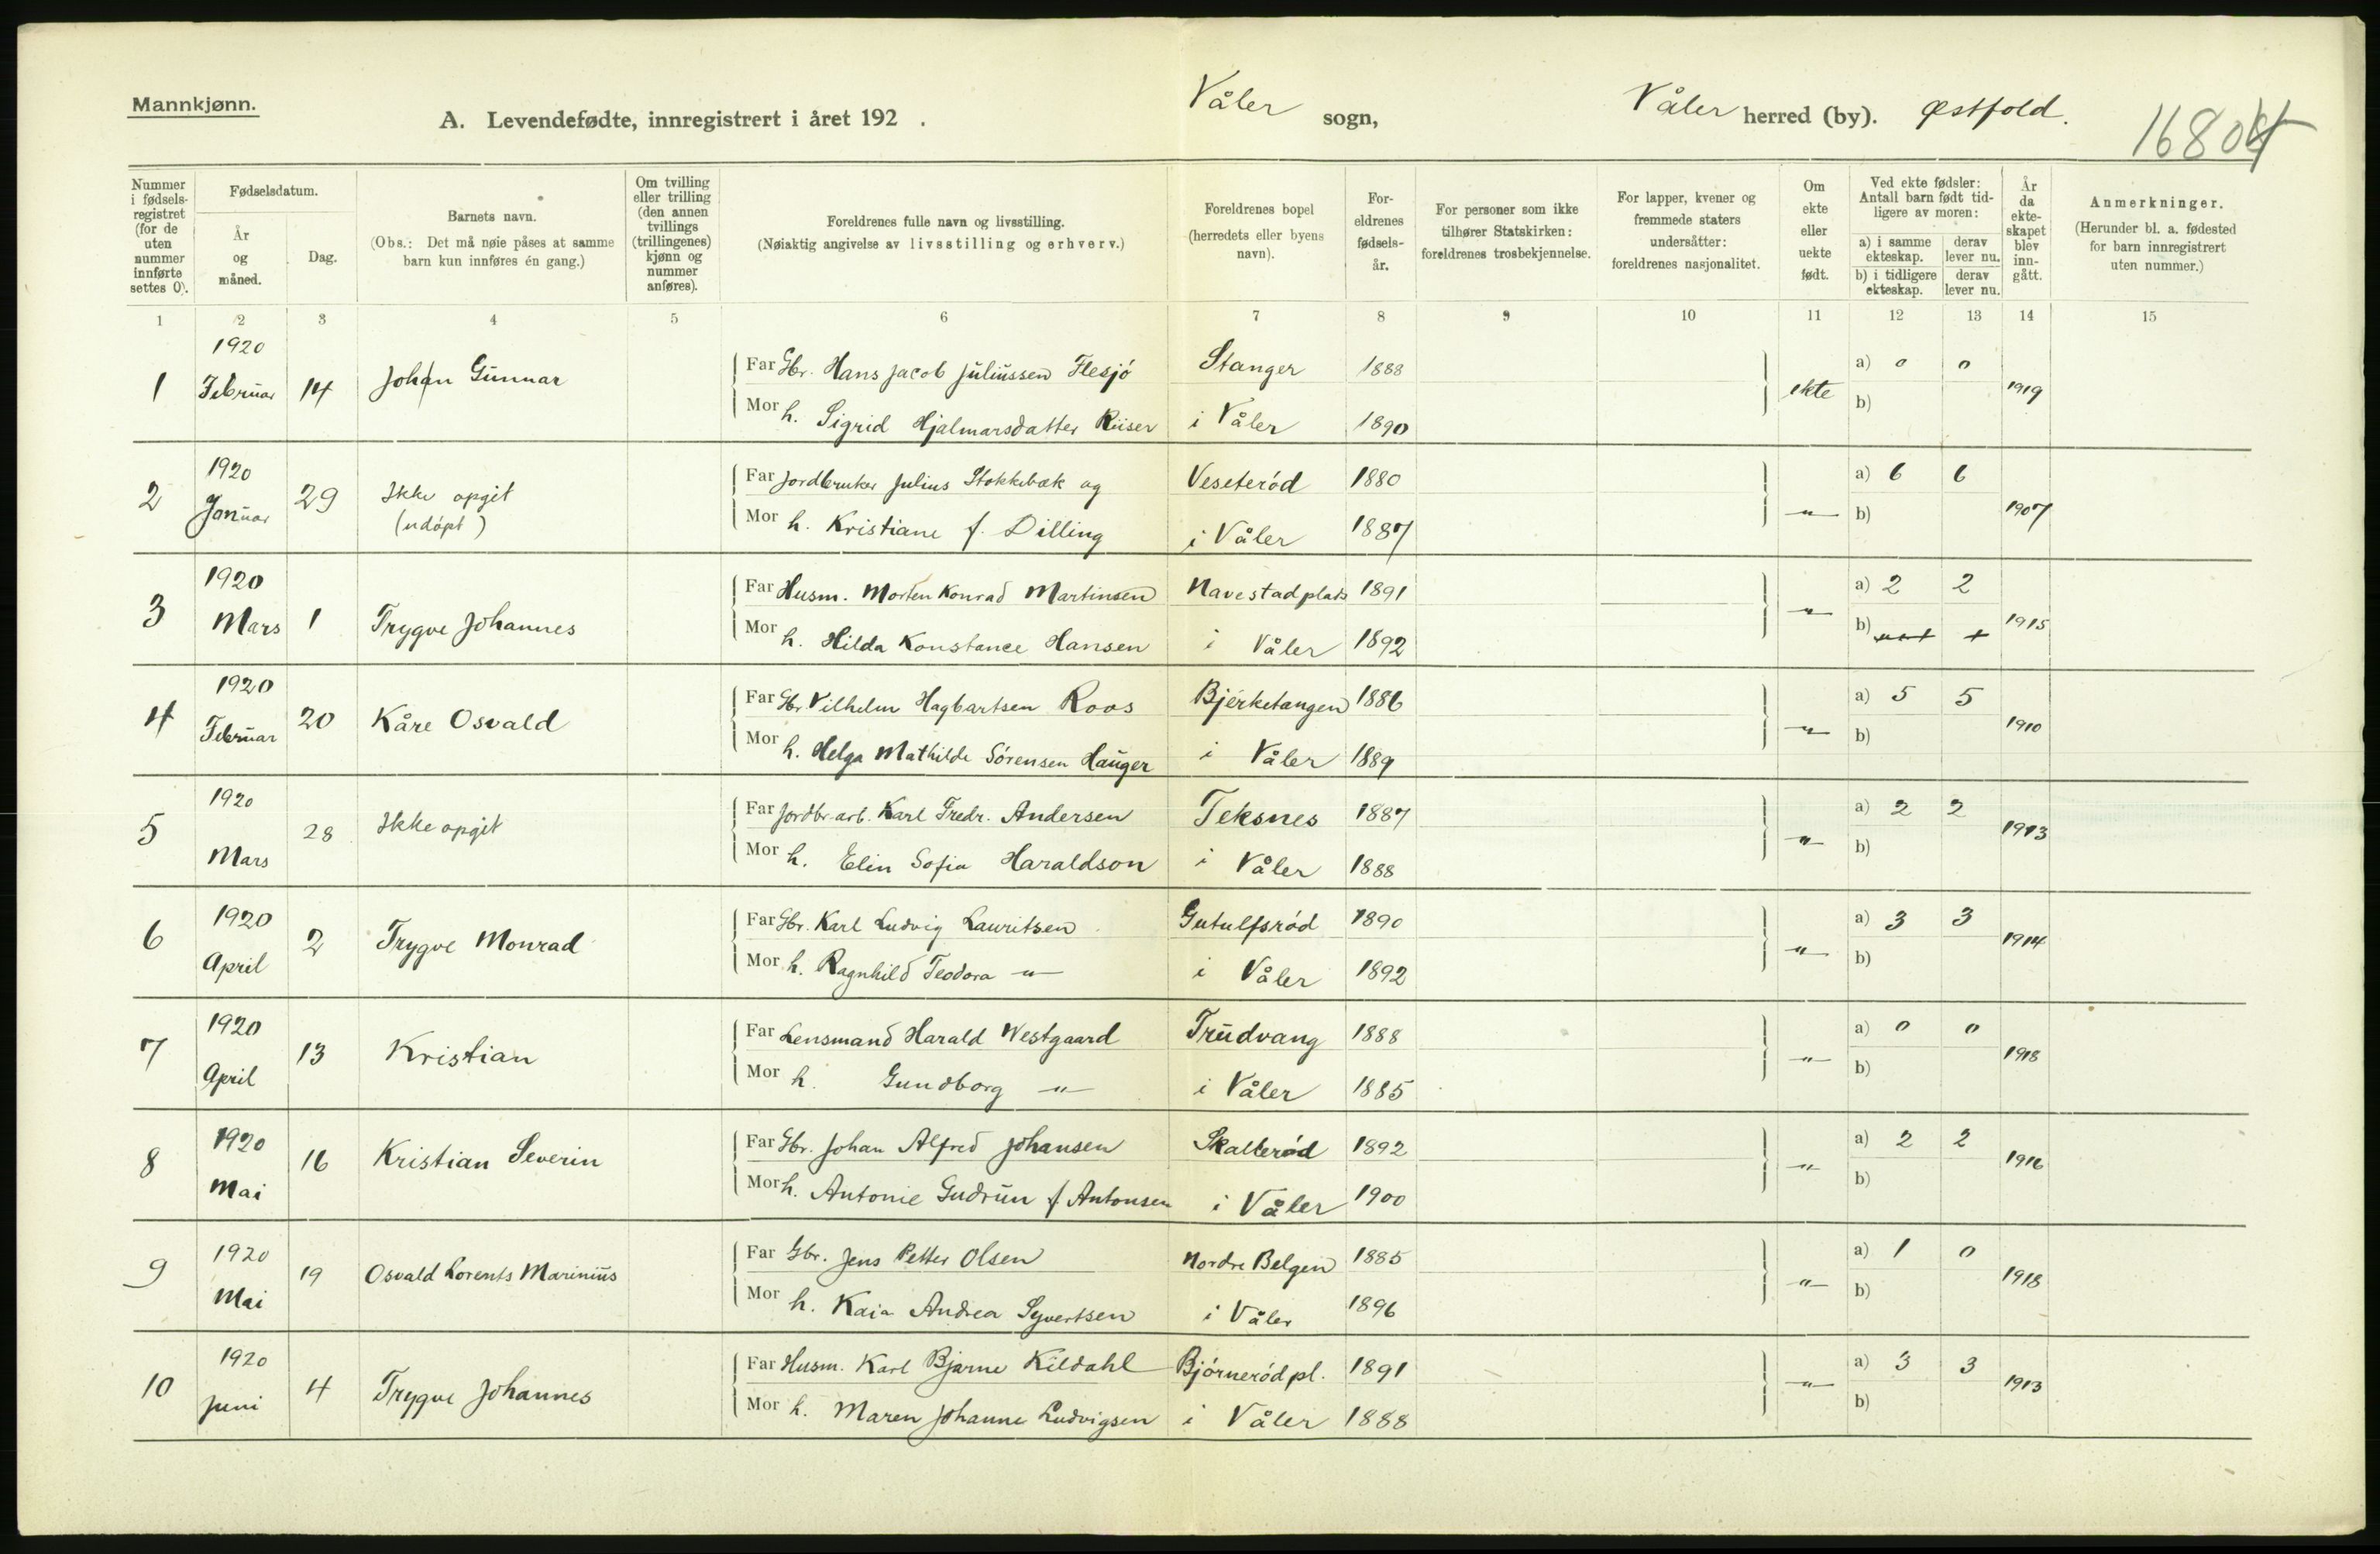 Mannkjønn.
A. Levendefødte, innregistrert i året 192 . Våler sogn, Våler herred (by). Østfold.
Nummer i fødselsregistret (for de uten nummer innførte settes 0).
Fødselsdatum.
År og måned.
Dag.
Barnets navn.
(Obs.: Det må nøie påses at samme barn kun innføres én gang.)
Om tvilling eller trilling (den annen tvillings (trillingenes) kjønn og nummer anføres).
Foreldrenes fulle navn og livsstilling.
(Nøiaktig angivelse av livsstilling og erhverv.)
Foreldrenes bopel (herredets eller byens navn).
Foreldrenes fødselsår.
For personer som ikke tilhører Statskirken: foreldrenes trosbekjennelse.
For lapper, kvener og fremmede staters undersåtter: foreldrenes nasjonalitet.
Om ekte eller uekte født.
Ved ekte fødsler: Antall barn født tidligere av moren:
a) i samme ekteskap. derav lever nu.
b) i tidligere ekteskap. derav lever nu.
År da ekteskapet blev inngått.
Anmerkninger.
(Herunder bl. a. fødested for barn innregistrert uten nummer.)
1 2 3 4 5 6 7 8 9 10 11 12 13 14 15
1 1920 Februar 14 Johan Gunnar
Far Gbr. Hans Jacob Juliussen Flesjö Stanger 1888 ekte a) 0 0 1919
Mor h. Sigrid Hjalmarsdatter Riiser i Våler 1890 b)
2 1920 Januar 29 Ikke opgit (udöpt)
Far Jordbruker Julius Stokkebæk og Veseteröd 1880 " a) 6 6 1907
Mor h. Kristiane f. Dilling i Våler 1887 b)
3 1920 Mars 1 Trygve Johannes
Far Husm. Morten Konrad Martinsen Navestadplads 1891 " a) 2 2 1915
Mor h. Hilda Konstance Hansen i Våler 1892 b)
4 1920 Februar 20 Kåre Osvald
Far Gbr. Vilhelm Hagbartsen Roos Bjerketangen 1886 " a) 5 5 1910
Mor h. Helga Mathilde Sörensen Hauger i Våler 1889 b)
5 1920 Mars 28 Ikke opgit
Far Jordbr. arb. Karl Fredr. Andersen Teksnes 1887 " a) 2 2 1913
Mor h. Elin Sofia Haraldson i Våler 1888 b)
6 1920 April 2 Trygve Monrad
Far Gbr. Karl Ludvig Lauritsen Gutulfsröd 1890 " a) 3 3 1914
Mor h. Ragnhild Teodora " i Våler 1892 b)
7 1920 April 13 Kristian
Far Lensmand Harald Westgaard Trudvang 1888 " a) 0 0 1918
Mor h. Gundborg " i Våler 1885 b)
8 1920 Mai 16 Kristian Severin
Far Gbr. Johan Alfred Johansen Skalleröd 1892 " a) 2 2 1916
Mor h. Antonie Gudrun f. Antonsen i Våler 1900 b)
9 1920 Mai 19 Osvald Lorents Marinius
Far Gbr. Jens Petter Olsen Nordre Belgen 1885 " a) 1 0 1918
Mor h. Kaia Andrea Syvertsen i Våler 1896 b)
10 1920 Juni 4 Trygve Johannes
Far Husm. Karl Bjarne Kildahl Björneröd pl. 1891 " a) 3 3 1913
Mor h. Maren Johanne Ludvigsen i Våler 1888 b)